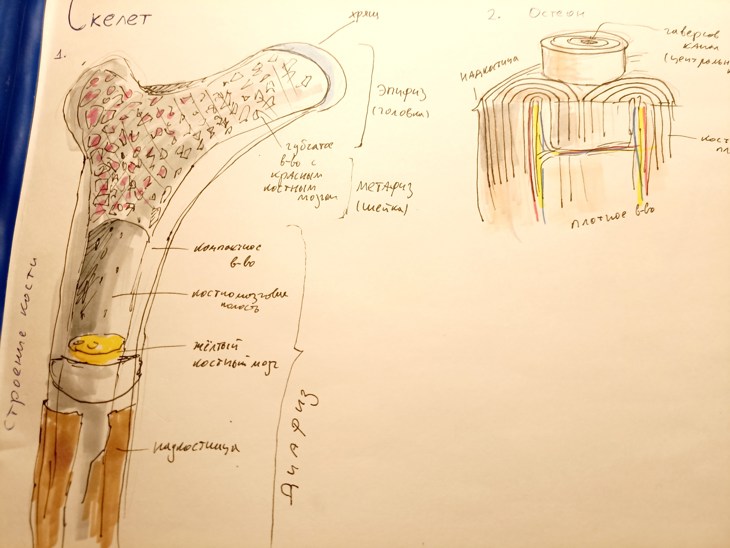 Скелет
1.
хрящ
Эпифиз
(головка)
губчатое
в-во с
красным
костным
мозгом
Метафиз
(шейка)
компактное
в-во
костномозговая
полость
жёлтый
костный мозг
надкостница
Диафиз
Строение кости
2. Остеон
гаверсов
канал
надкостница
плотное в-во